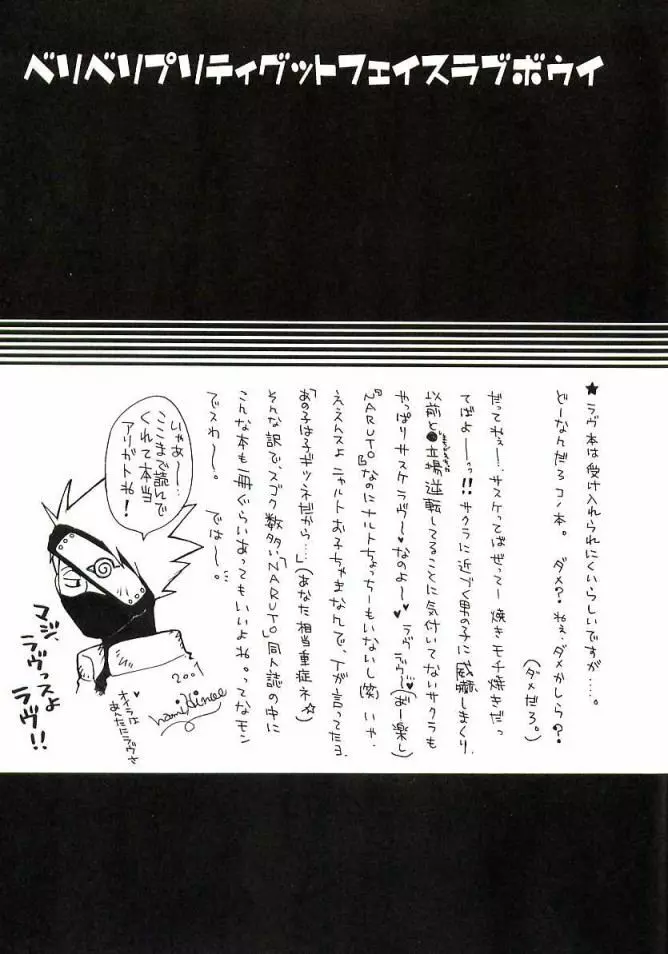 ベリベリプリティグットフェイスラブボウイ
★ラヴ本は受け入れられにくいらしいですが……。
どーなんだろコノ本。 ダメ?ねぇ、ダメかしら?
(ダメだろ。)
だってねぇー…サスケってばぜってー焼きモチ焼きだっ
てばよーーっ!!サクラに近づく男の子に威嚇しまくり。
以前と立場逆転してることに気付いてないサクラも
やっぱりサスケラヴ〜♥なのよ〜♥ラヴラヴ〜♥(おー楽し)
『NARUTO』なのにナルトちょっちーもいないし(笑)いや、
ええんスよニャルトお子ちゃまなんで。Tが言ってたヨ
「あの子は子ギツネだから…」(あなた相当重症ネ☆)
そんな訳で、スゴク数多い『NARUTO』同人誌の中に
こんな本も一冊ぐらいあってもいいよね。ってなモン
でスわ〜。 では〜。
じゃあ〜…
ここまで読んで
くれて本当
アリガトね!
マジ、
ラヴっスよ
ラヴ!!
2001
オイラは
あんたにラヴさ